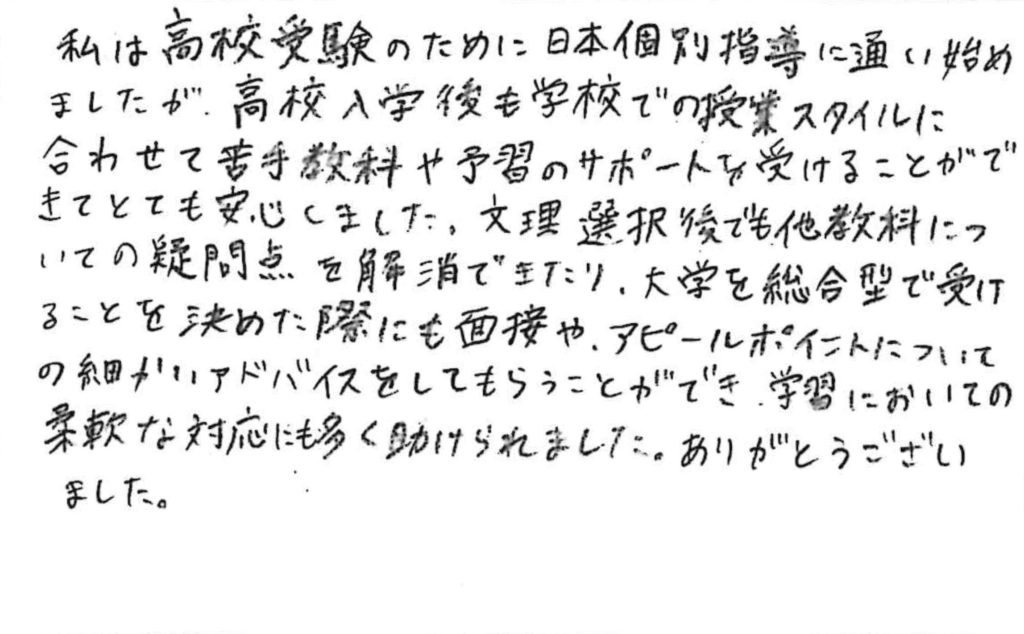 私は高校受験のために日本個別指導に通い始め
ましたが、高校入学後も学校での授業スタイルに
合わせて苦手教科や予習のサポートを受けることがで
きてとても安心しました。文理選択後でも他教科につ
いての疑問点を解消できたり、大学を総合型で受け
ることを決めた際にも面接や、アピールポイントについて
の細かいアドバイスをしてもらうことができ、学習においての
柔軟な対応にも多く助けられました。ありがとうござい
ました。